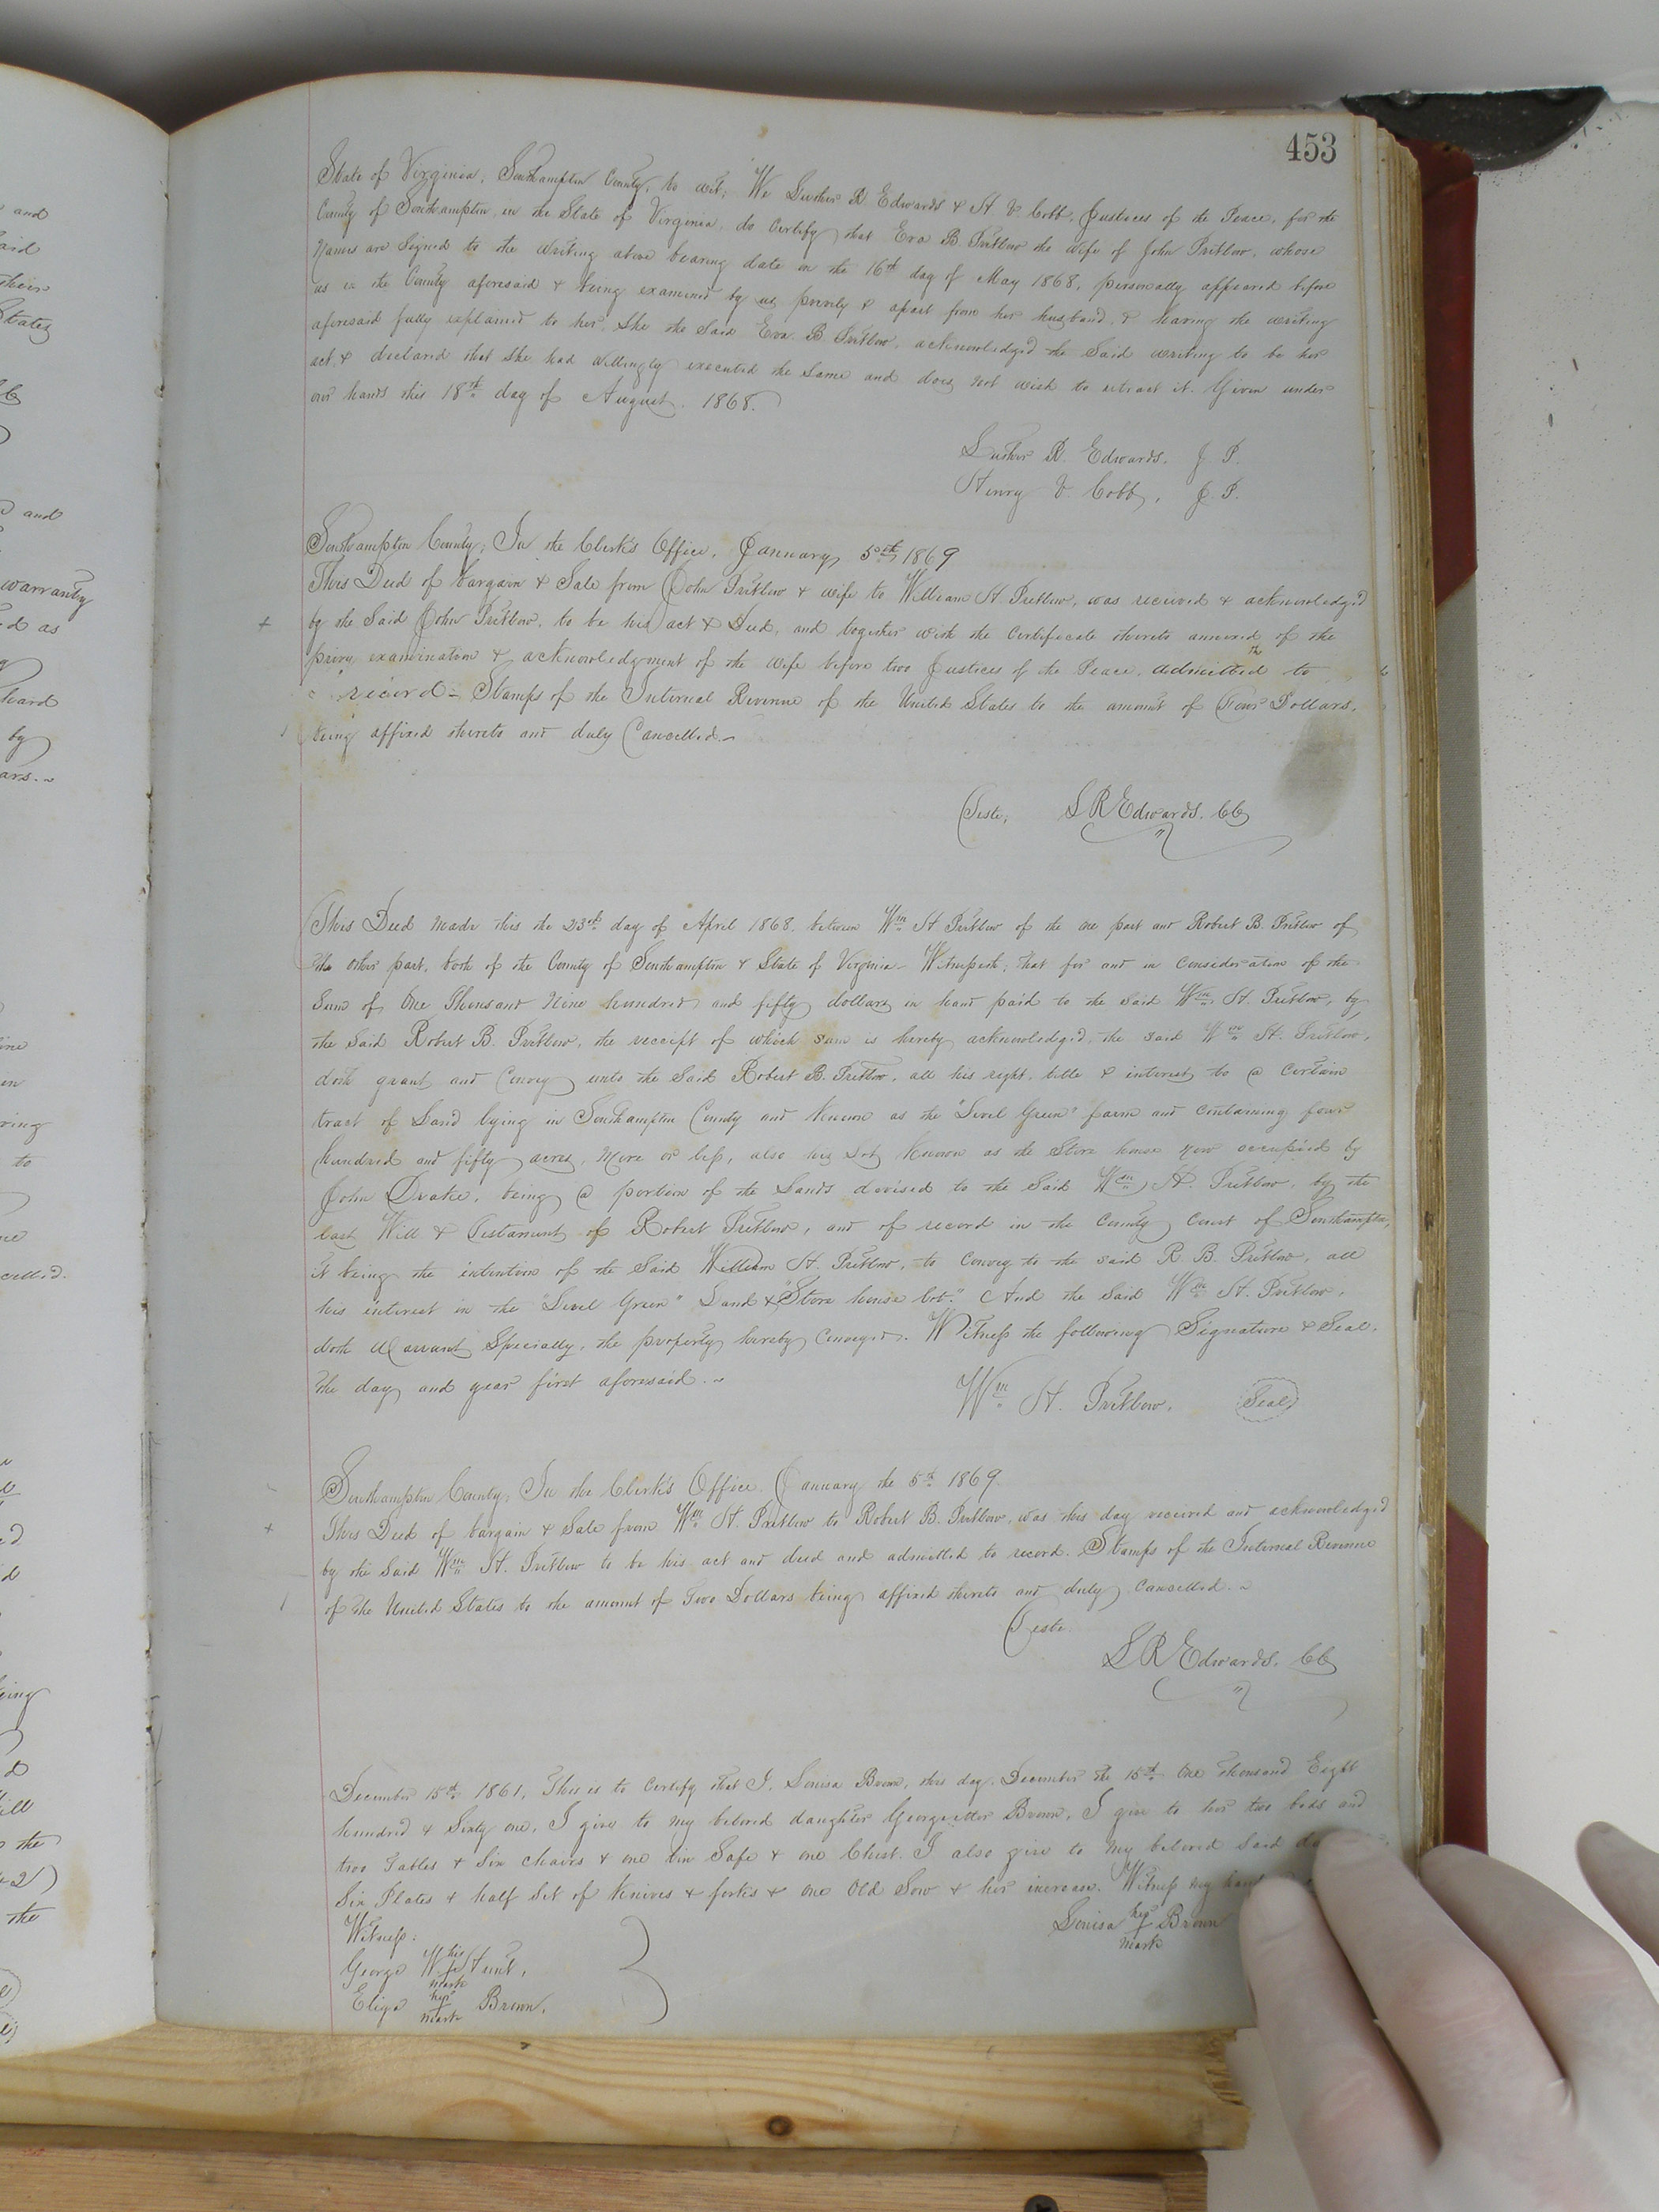 453
State of Virginia, Southampton County, to wit: We Luther R. Edwards & H V Cobb, Justices of the Peace, for the
County of Southampton, in the State of Virginia, do Certify that Eva B. Pretlow the wife of John Pretlow, whose
Names are Signed to the writing above bearing date on the 16th day of May 1868, personally appeared before
us in the County aforesaid & being examined by us privily & apart from her husband, & having the writing
aforesaid fully explained to her, She the Said Eva B. Pretlow, acknowledged the Said writing to be her
act, & declared that She had willingly executed the Same and does not wish to retract it. Given under
our hands this 18th day of August. 1868.
Luther R. Edwards. J. P.
Henry V. Cobb, J. P.
Southampton County; In the Clerk's Office, January 5th 1869
This Deed of bargain & Sale from John Pretlow & wife to William H. Pretlow, was received & acknowledged
by the Said John Pretlow, to be his act & Deed, and together with the Certificate thereto annexed of the
privy examination & acknowledgment of the wife before two Justices of the Peace, admitted to
record - Stamps of the Internal Revenue of the United States to the amount of Four Dollars,
being affixed thereto and duly Cancelled.~
Teste, L R Edwards. CC
This Deed made this the 23rd day of April 1868. between Wm H Pretlow of the one part and Robert B. Pretlow of
the other part, both of the County of Southampton & State of Virginia - Witnesseth; that for and in consideration of the
Sum of One Thousand Nine hundred and fifty dollars in hand paid to the said Wm H. Pretlow, by
the said Robert B. Pretlow, the receipt of which sum is hereby acknowledged, the said Wm H. Pretlow,
doth grant and Convey unto the Said Robert B. Pretlow, all his right, title & interest to a Certain
tract of Land lying in Southampton County and Known as the "Level Green" farm and containing four
hundred and fifty acres, More or less, also his Lot Known as the Store house now occupied by
John Drake, being a portion of the Lands devised to the Said Wm H. Pretlow, by the
last Will & Testament of Robert Pretlow, and of record in the County Court of Southampton,
it being the intention of the Said William H. Pretlow, to Convey to the said R. B. Pretlow, all
his interest in the "Level Green" Land & "Store house Lot." And the Said Wm H. Pretlow,
doth Warrant Specially, the property hereby Conveyed. Witness the following Signature & Seal,
the day and year first aforesaid.~
Wm H. Pretlow. Seal
Southampton County, In the Clerk's Office January the 5th 1869.
This Deed of bargain & Sale from Wm H. Pretlow to Robert B. Pretlow, was this day received and acknowledged
by the Said Wm H. Pretlow to be his act and deed and admitted to record. Stamps of the Internal Revenue
of the United States to the amount of Two Dollars being affixed thereto and duly Cancelled.~
Teste.
L R Edwards. CC
December 15th 1861, This is to Certify that I, Louisa Brown, this day. December the 15th One Thousand Eight
hundred & Sixty one, I give to my beloved daughter Georgietter Brown, I give to her two beds and
two Tables & Six chairs & one tin Safe & one Chest. I also give to my beloved Said
Six Plates & half Set of Knives & forks & one Old Sow & her increase. Witness my hand
Louisa her Brown
mark
Witness:
George W his Hunt,
mark
Eliza her Brown.
mark